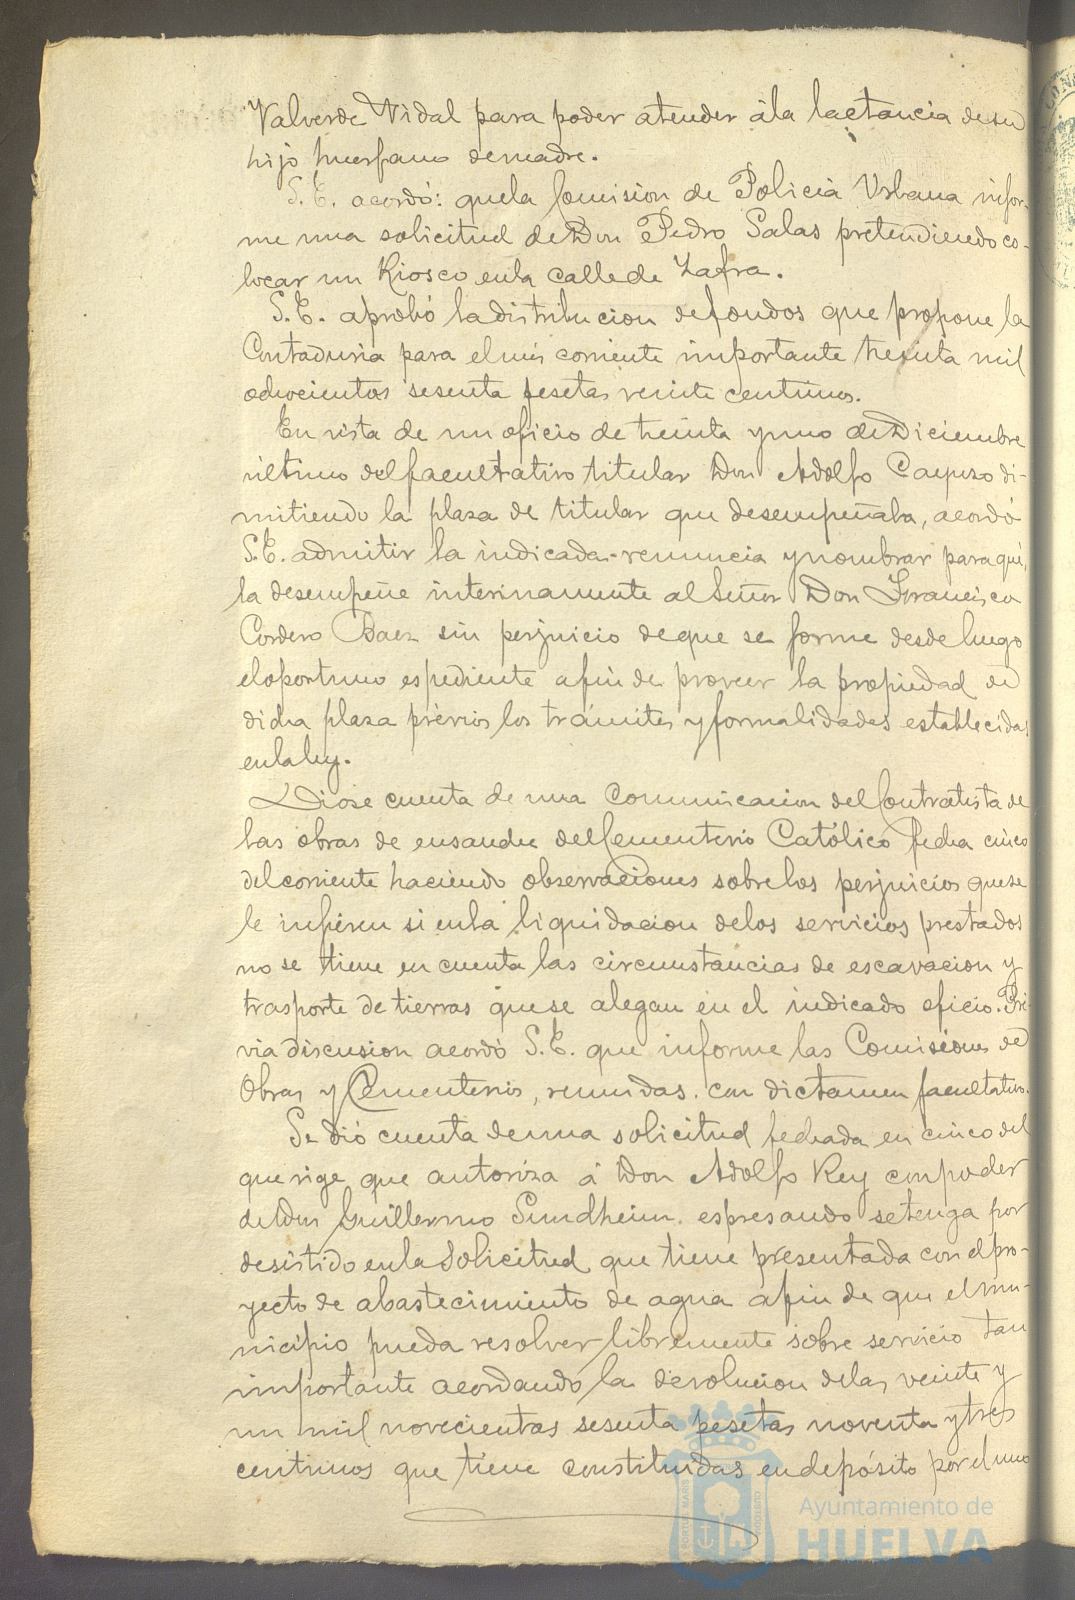 Valverde Vidal para poder atender á la lactancia de su
hijo huerfano de madre.
S. E. acordó: que la Comision de Policia Urbana infor-
me una solicitud de Don Pedro Salas pretendiendo co-
locar un Kiosco en la calle de Zafra.
S. E. aprobó la distribucion de fondos que propone la
Contaduria para el mes corriente importante treinta mil
ochocientos sesenta pesetas veinte centimos.
En vista de un oficio de treinta y uno de Diciembre
ultimo del facultativo titular Don Adolfo di-
mitiendo la plaza de titular que desempeñaba, acordó
S. E. admitir la indicada renuncia y nombrar para que
la desempeñe interinamente al Señor Don Francisco
Cordero Baez sin perjuicio de que se forme desde luego
el oportuno espediente a fin de proveer la propiedad de
dicha plaza prévios los trámites y formalidades establecidas
en la ley.
Diose cuenta de una comunicacion del Contratista de
las obras de ensanche del Cementerio Católico fecha cinco
del corriente haciendo observaciones sobre los perjuicios que se
le infieren si en la liquidacion de los servicios prestados
no se tiene en cuenta las circunstancias de escavacion y
trasporte de tierras que se alegan en el indicado oficio. Pré
via discusion acordó S. E. que informe las Comisiones de
Obras y Cementerios, reunidas, con dictamen facultativo.
Se dió cuenta de una solicitud fechada en cinco del
que rige que autoriza á Don Adolfo Rey con poder
de Don Guillermo Sundheim espresando se tenga por
desistido en la solicitud que tiene presentada con el pro-
yecto de abastecimiento de agua a fin de que el mu-
nicipio pueda resolver libremente sobre servicio tan
importante acordando la devolucion de las veinte y
un mil novecientas sesenta pesetas noventa y tres
centimos que tiene constituidas en depósito por el uno
Ayuntamiento de
HUELVA